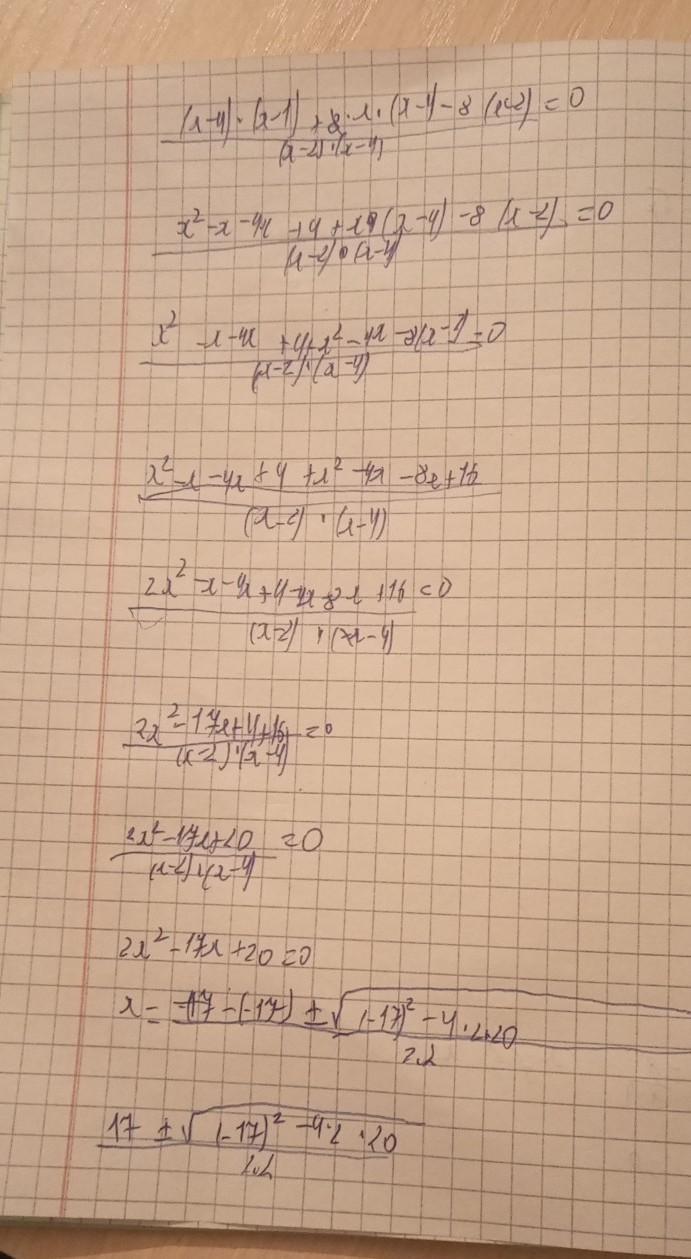 (x-4)·(x-1) + 8·x·(x-4) - 8(x-2) = 0
(x-2)·(x-4)
x² - x - 4x + 4 + x(x-4) - 8(x-2) = 0
(x-2)·(x-4)
x² - x - 4x + 4 + x² - 4x - 8(x-2) = 0
(x-2)·(x-4)
x² - x - 4x + 4 + x² - 4x - 8x + 16
(x-2)·(x-4)
2x² - x - 4x + 4 - 4x - 8x + 16 = 0
(x-2)·(x-4)
2x² - 17x + 4 + 16 = 0
(x-2)·(x-4)
2x² - 17x + 20 = 0
(x-2)·(x-4)
2x² - 17x + 20 = 0
x = -(-17) ± √(-17)² - 4·2·20
2·2
17 ± √(-17)² - 4·2·20
2·2